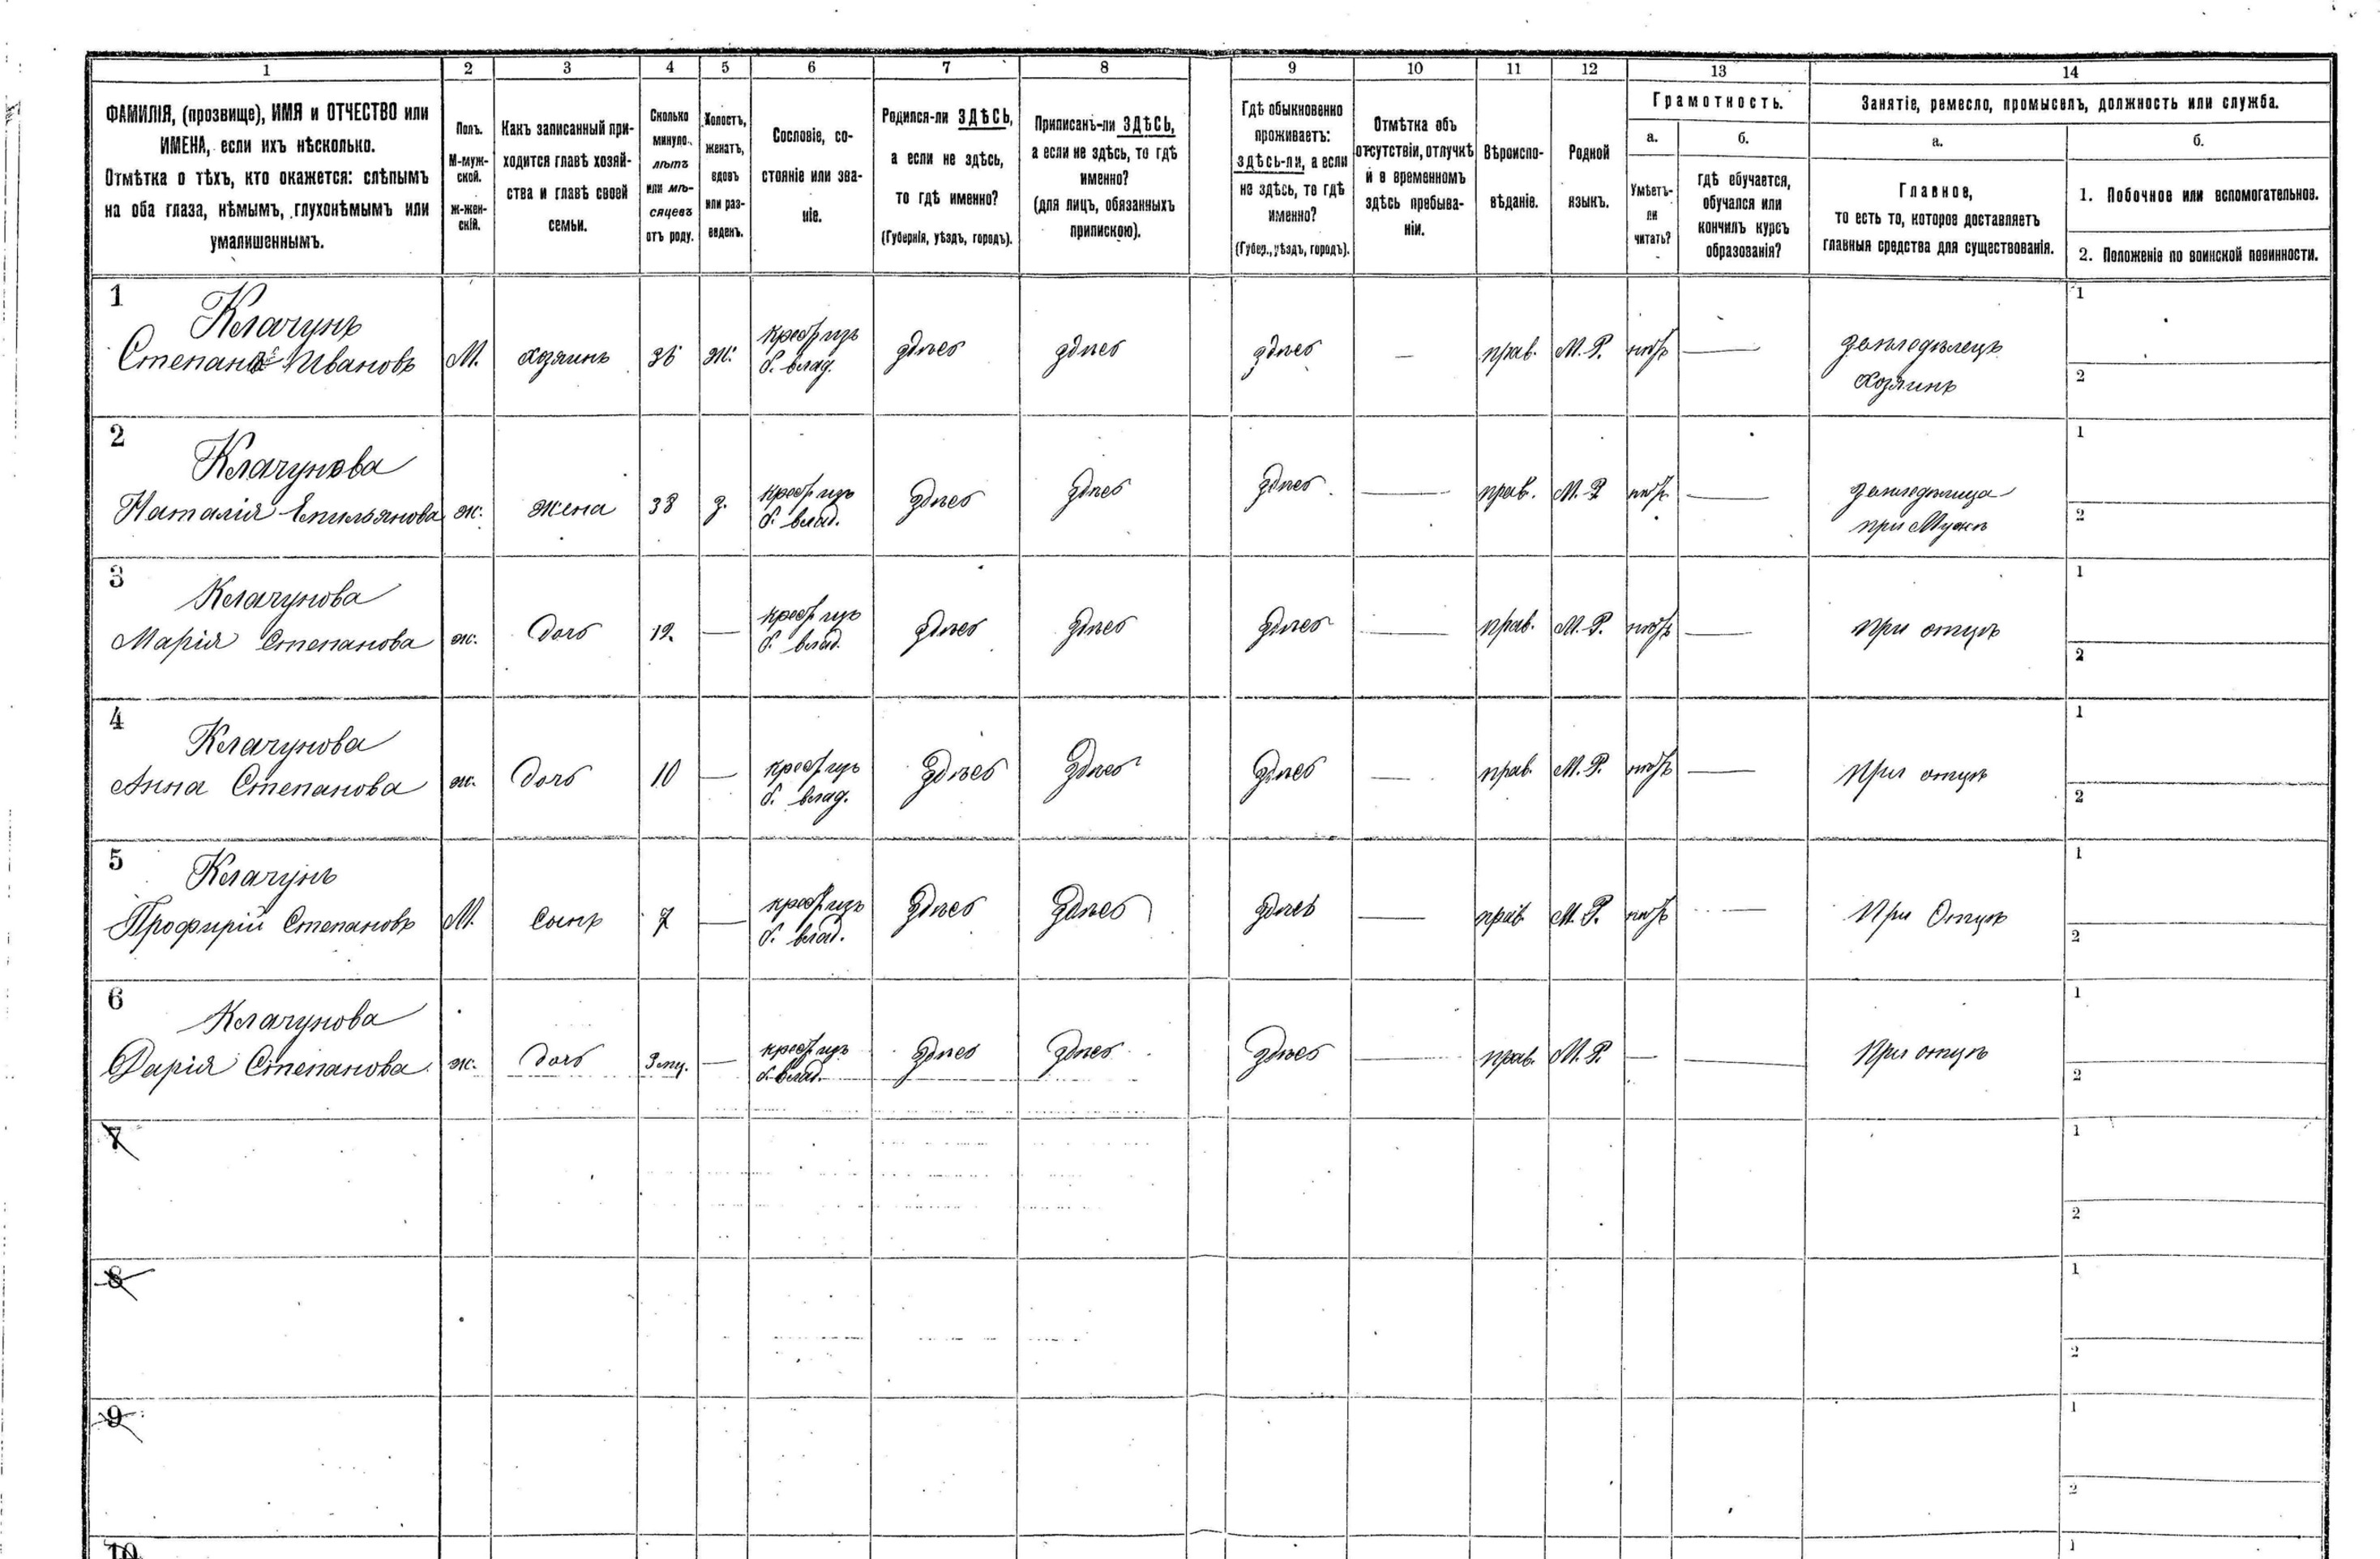 1 2 3 4 5 6 7 8 9 10 11 12 13 14
ФАМИЛІЯ, (прозвище), ИМЯ и ОТЧЕСТВО или
ИМЕНА, если ихъ нѣсколько.
Отмѣтка о тѣхъ, кто окажется: слѣпымъ
на оба глаза, нѣмымъ, глухонѣмымъ или
умалишеннымъ.
Полъ.
М-муж-
ской.
ж-жен-
скій.
Какъ записанный при-
ходится главѣ хозяй-
ства и главѣ своей
семьи.
Сколько
минуло
лѣтъ
или мѣ-
сяцевъ
отъ роду.
Холостъ,
женатъ,
вдовъ
или раз-
веденъ.
Сословіе, со-
стояніе или зва-
ніе.
Родился-ли ЗДѢСЬ,
а если не здѣсь,
то гдѣ именно?
(Губернія, уѣздъ, городъ).
Приписанъ-ли ЗДѢСЬ,
а если не здѣсь, то гдѣ
именно?
(для лицъ, обязанныхъ
припискою).
Гдѣ обыкновенно
проживаетъ:
здѣсь-ли, а если
не здѣсь, то гдѣ
именно?
(Губер., уѣздъ, городъ).
Отмѣтка объ
отсутствіи, отлучкѣ
и о временномъ
здѣсь пребыва-
ніи.
Вѣроиспо-
вѣданіе.
Родной
языкъ.
Грамотность.
а.
Умѣетъ-
ли
читать?
б.
Гдѣ обучается,
обучался или
кончилъ курсъ
образованія?
Занятіе, ремесло, промыселъ, должность или служба.
а.
Главное,
то есть то, которое доставляетъ
главныя средства для существованія.
б.
1. Побочное или вспомогательное.
2. Положеніе по воинской повинности.
1
Клачунъ
Степанъ Ивановъ
М.
хозяинъ
36
ж.
крест. изъ
б. влад.
здѣсь
здѣсь
здѣсь
—
прав.
М. Р.
нѣтъ
—
земледѣлецъ
хозяинъ
1
2
2
Клачунова
Наталія Емильянова
ж.
жена
38
з.
крест. изъ
б. влад.
здѣсь
здѣсь
здѣсь
—
прав.
М. Р.
нѣтъ
—
при Мужѣ
1
2
3
Клачунова
Марія Степанова
ж.
дочь
12
—
крест. изъ
б. влад.
здѣсь
здѣсь
здѣсь
—
прав.
М. Р.
нѣтъ
—
при отцѣ
1
2
4
Клачунова
Анна Степанова
ж.
дочь
10
—
крест. изъ
б. влад.
здѣсь
здѣсь
здѣсь
—
прав.
М. Р.
нѣтъ
—
при отцѣ
1
2
5
Клачунъ
Профирій Степановъ
М.
сынъ
7
—
крест. изъ
б. влад.
здѣсь
здѣсь
здѣсь
—
прав.
М. Р.
нѣтъ
—
При Отцѣ
1
2
6
Клачунова
Дарія Степанова
ж.
дочь
3 мц.
—
крест. изъ
б. влад.
здѣсь
здѣсь
здѣсь
—
прав.
М. Р.
—
—
При отцѣ
1
2
7
1
2
8
1
2
9
1
2
10
1